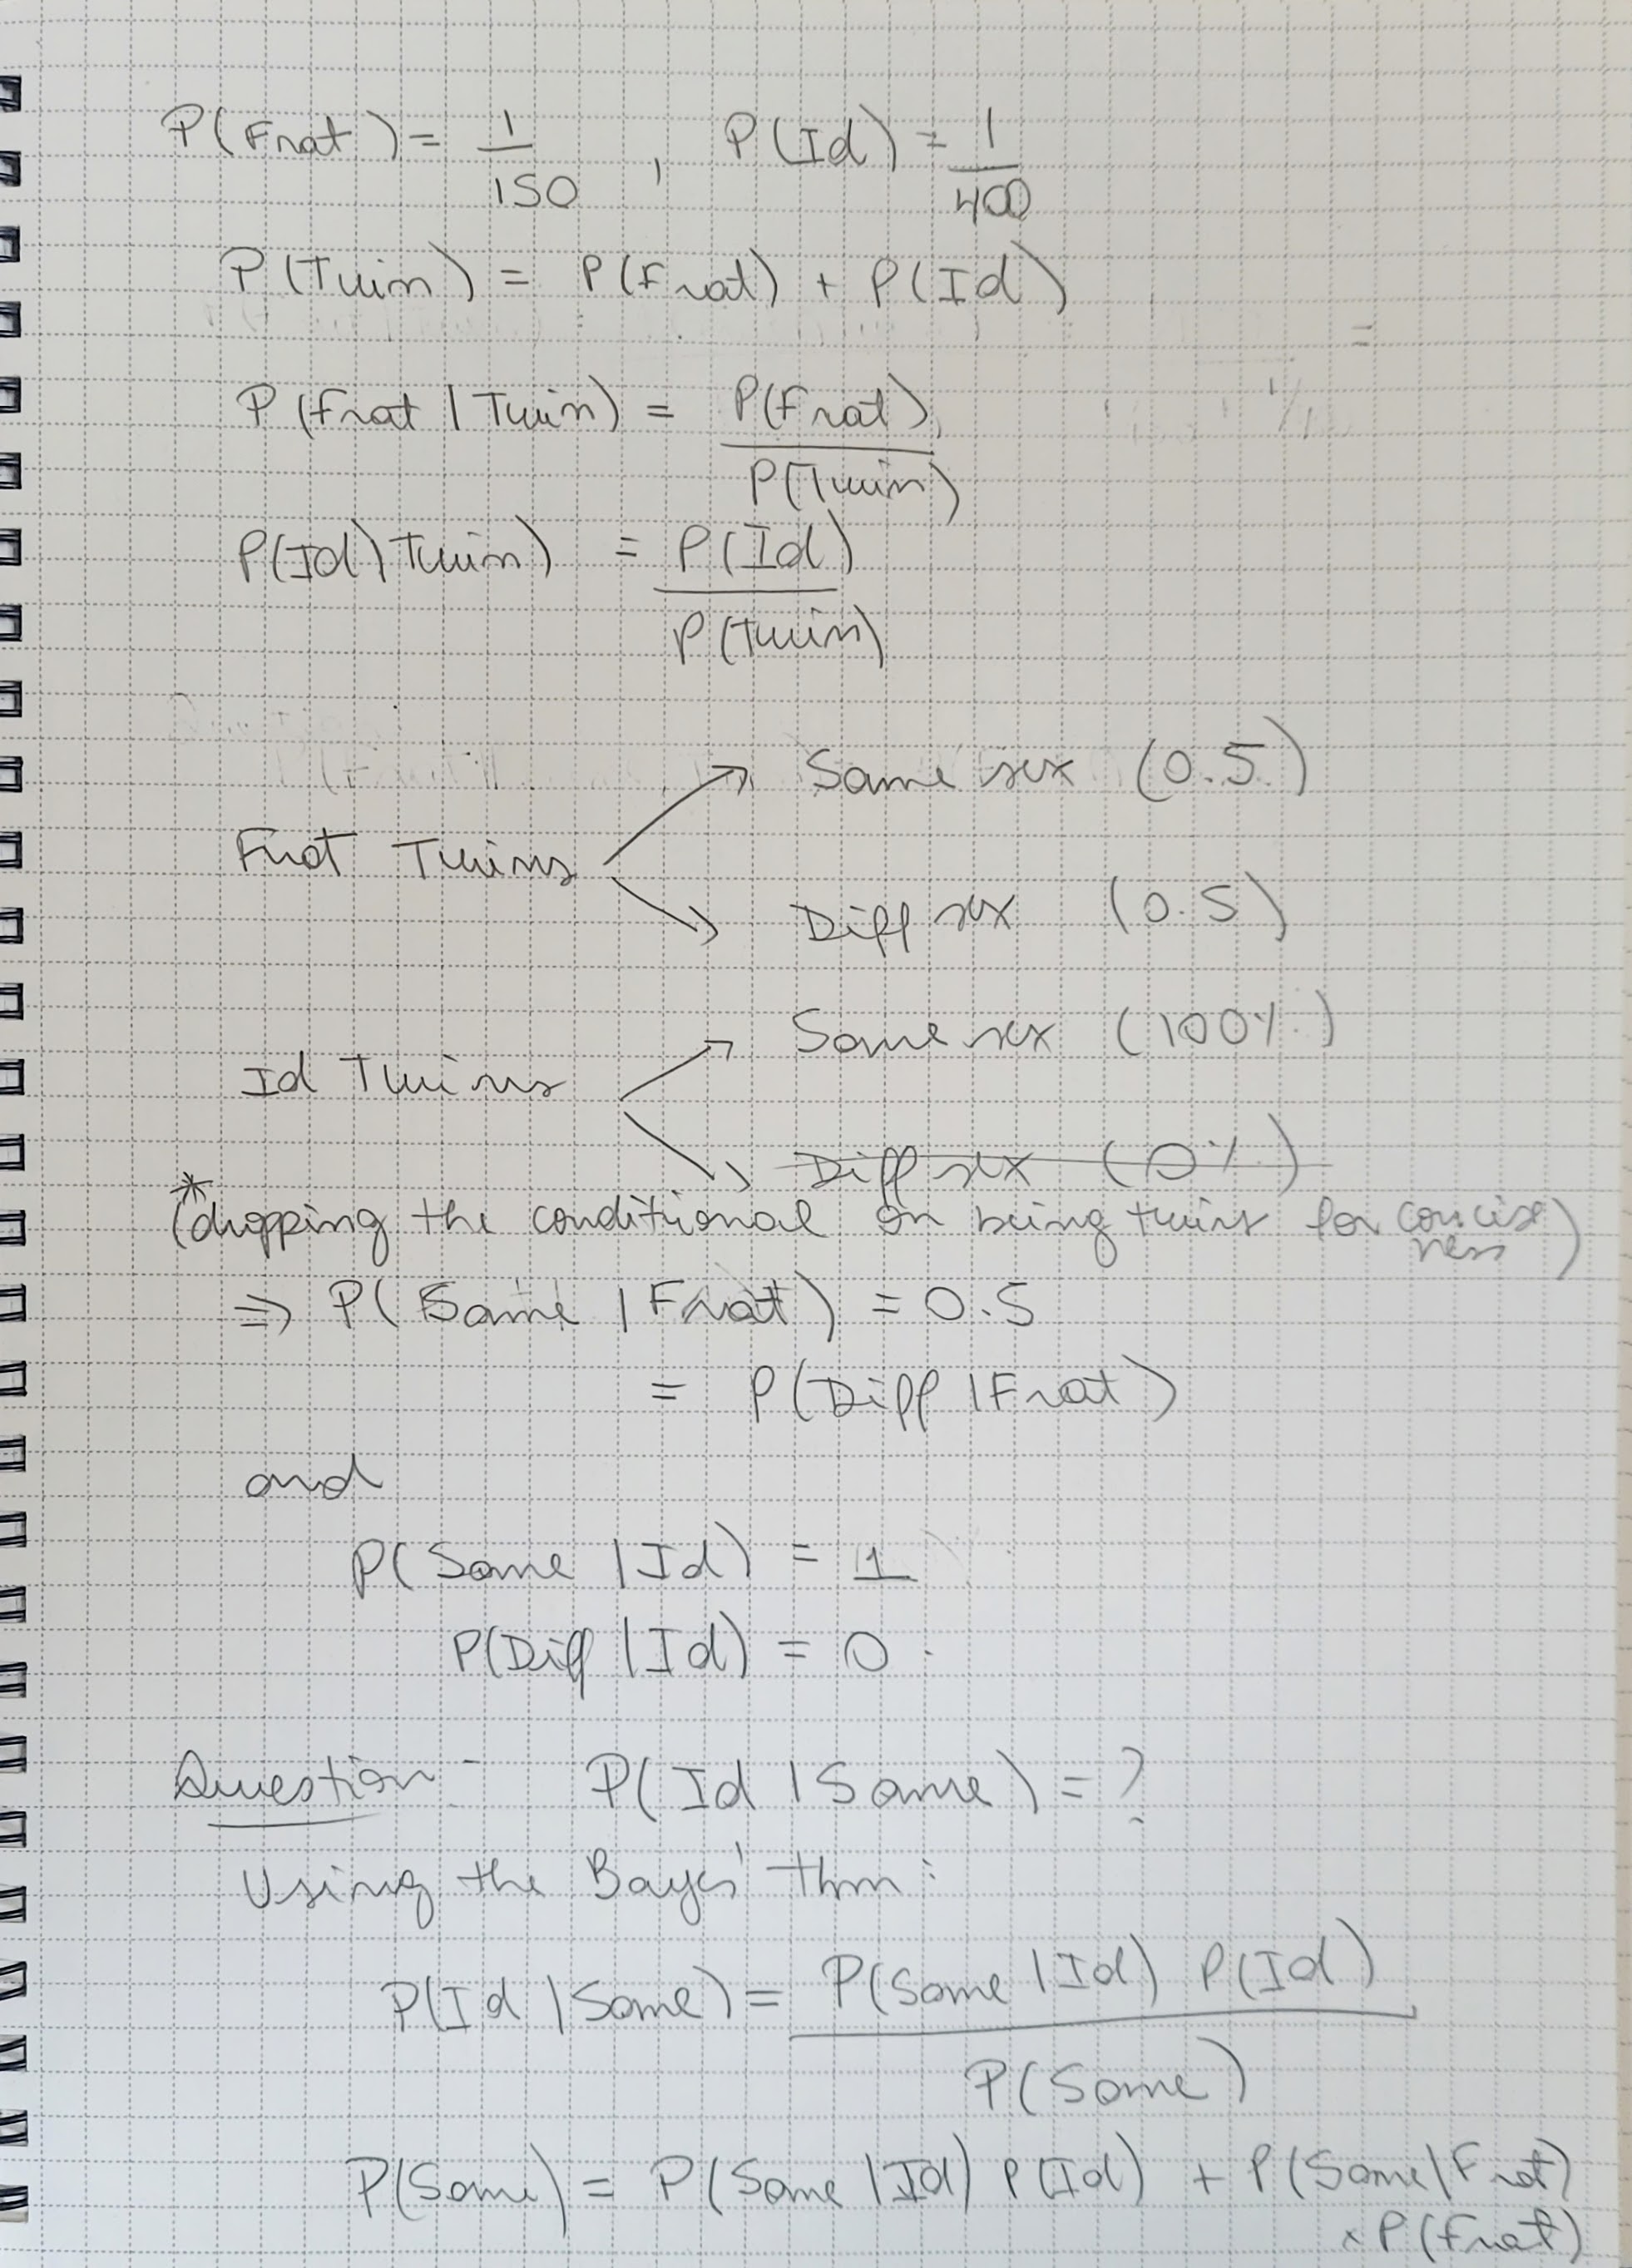 P(Frat) = 1/150 , P(Id) = 1/400
P(Twin) = P(Frat) + P(Id)
P(Frat | Twin) = P(Frat) / P(Twin)
P(Id | Twin) = P(Id) / P(Twin)
Same sex (0.5)
Frat Twins
Diff sex (0.5)
Same sex (100%)
Id Twins
Diff sex (0%)
*(dropping the conditional on being twins for conciseness)
⇒ P(Same | Frat) = 0.5
= P(Diff | Frat)
and
P(Same | Id) = 1
P(Diff | Id) = 0.
Question: P(Id | Same) = ?
Using the Bayes' thm:
P(Id | Same) = P(Same | Id) P(Id) / P(Same)
P(Same) = P(Same | Id) P(Id) + P(Same | Frat)
× P(Frat)